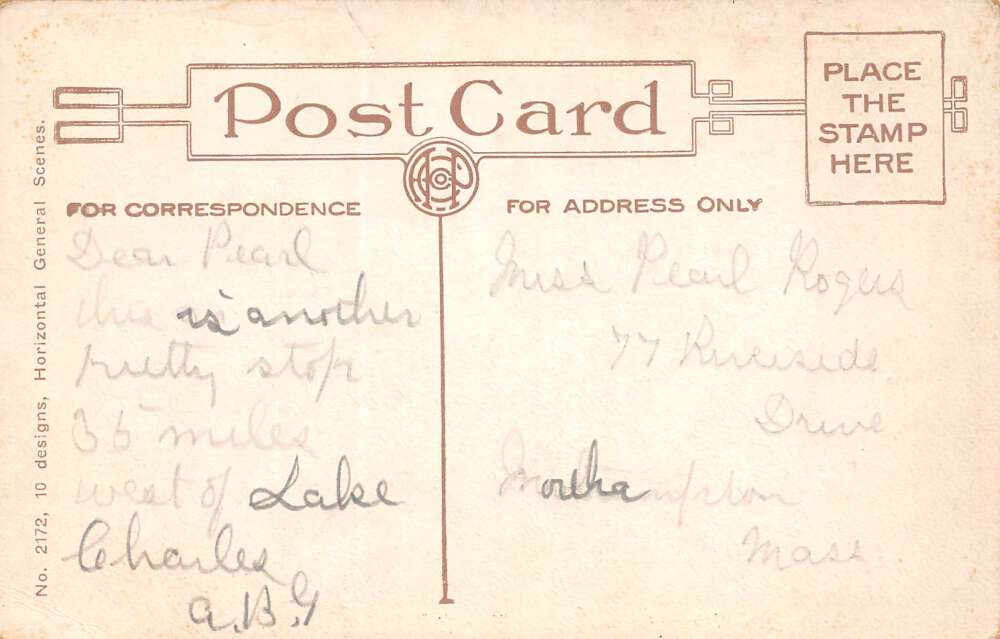 Post Card
PLACE
THE
STAMP
HERE
FOR CORRESPONDENCE
FOR ADDRESS ONLY
No. 2172, 10 designs, Horizontal General Scenes.
Dear Pearl
this is another
pretty stop
36 miles
west of Lake
Charles
A.B.G
Miss Pearl Rogers
77 Riverside
Drive
Northampton
Mass.